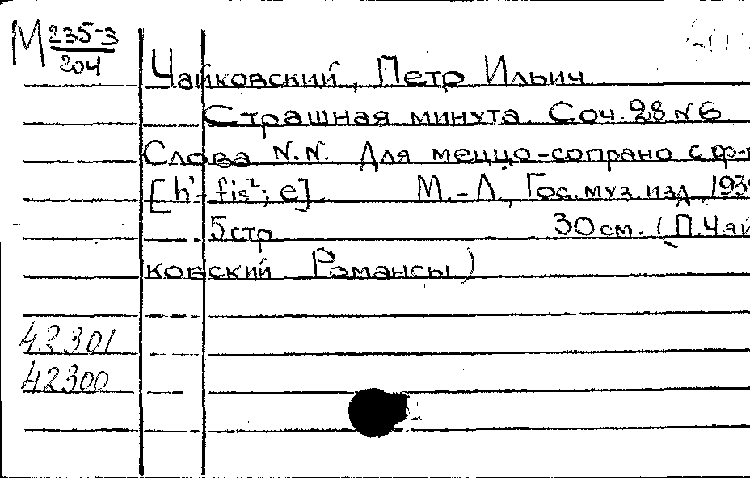 М 235-3
204
Чайковский, Петр Ильич
Страшная минута. Соч. 28 N 6
Слова N.N. Для меццо-сопрано с ф-
[h¹-fis²; e]. М.-Л., Гос. муз. изд., 193
5 стр 30 см. (П. Чай
ковский Романсы)
42301
42300